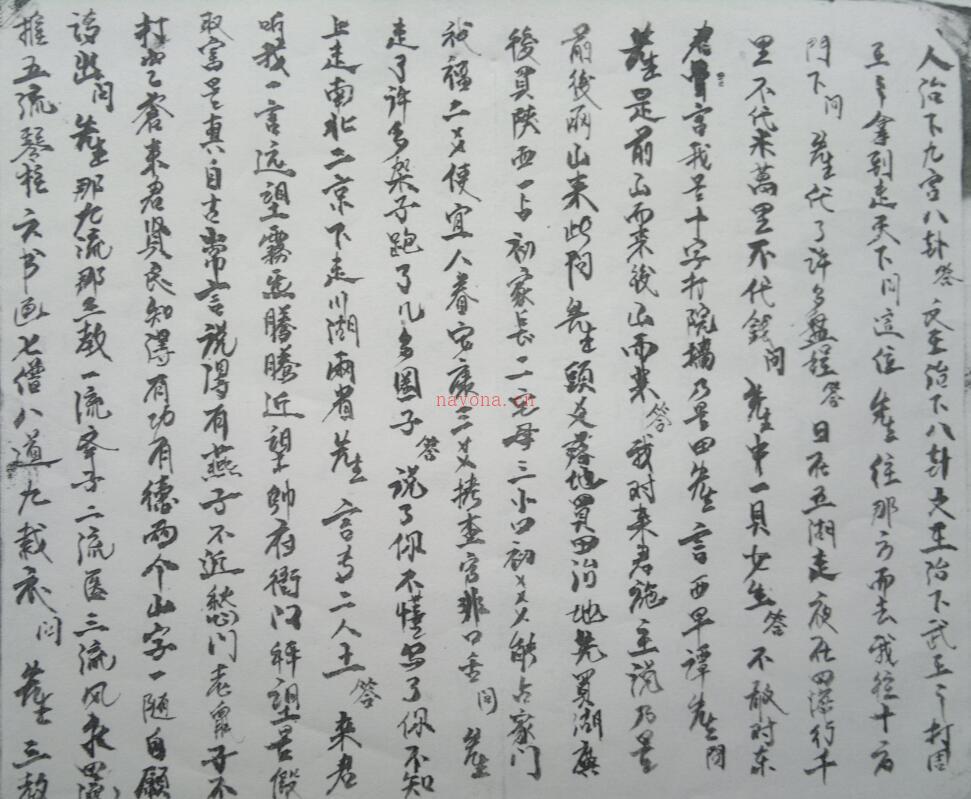 人治下九宫八卦答文王治下八卦文王治下武王之村周
王之拿到走天下问這位先生往那方而去我往十方
门下问先生代了许多盘程答日在五湖走夜在四海行千
里不代米萬里不代钱问先生中一貝女生答不敢对东
君言我是十字打院墙乃是四先生言西早譚先生问
先生是前山而来後山而来答我对来君施主说乃是
前後两山来此问先生頭爻落地買田治地先買湖廣
後買陕西一占初家長二占母三小口初爻能占家門
祸福二爻便宜人眷安康三爻拷查官非口舌问先生
走了许多架子跑了几多圈子答说了你不懂写了你不知
上走南北二京下走川湖兩省先生言寺二人土答来君
听我一言远望霧气騰騰近望帥府衙门科望是假
取富是真自古常言说得有燕子不近愁门老鼠子不
村出乙蒼来君贤良知得有功有德两个山字一随自願
請出问先生那九流那三教一流举子二流医三流风水四流
推五流琴棋六书画七僧八道九裁衣问先生三教
nayona.cn